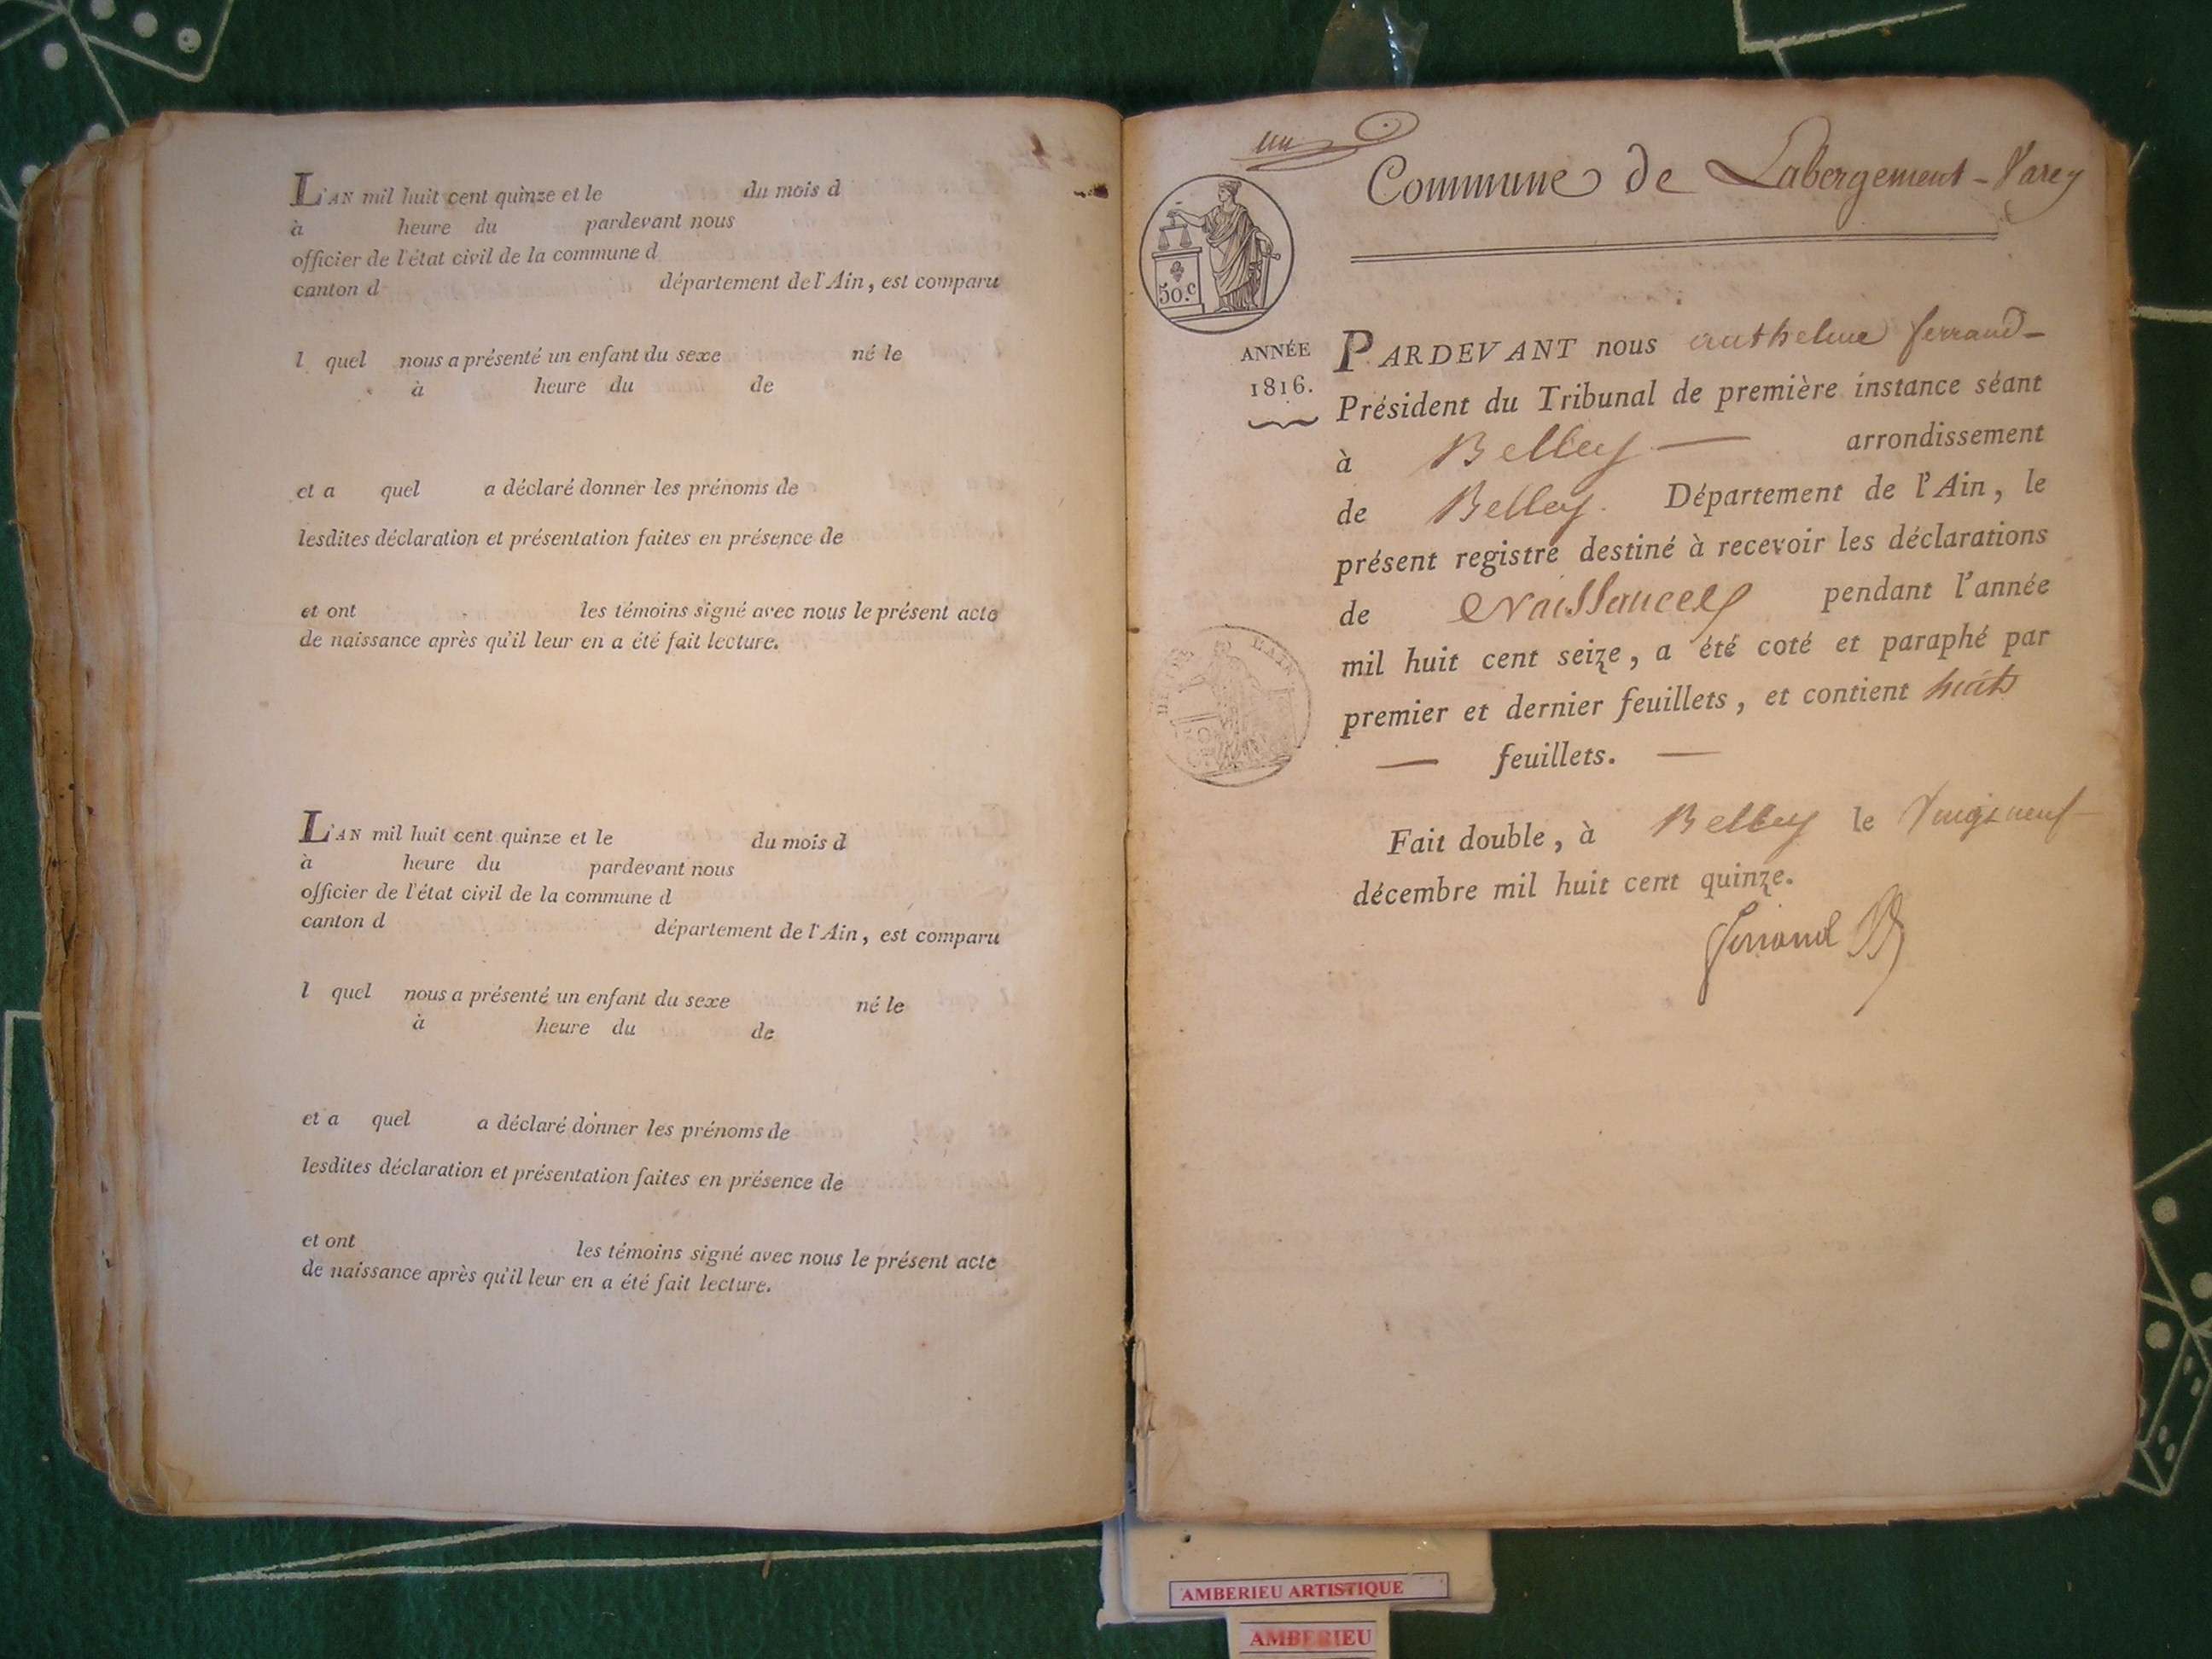 L'AN mil huit cent quinze et le du mois d
à heure du pardevant nous
officier de l'état civil de la commune d
canton d département de l'Ain, est comparu
l quel nous a présenté un enfant du sexe né le
à heure du de
et a quel a déclaré donner les prénoms de
lesdites déclaration et présentation faites en présence de
et ont les témoins signé avec nous le présent acte
de naissance après qu'il leur en a été fait lecture.
L'AN mil huit cent quinze et le du mois d
à heure du pardevant nous
officier de l'état civil de la commune d
canton d département de l'Ain, est comparu
l quel nous a présenté un enfant du sexe né le
à heure du de
et a quel a déclaré donner les prénoms de
lesdites déclaration et présentation faites en présence de
et ont les témoins signé avec nous le présent acte
de naissance après qu'il leur en a été fait lecture.
un
Commune de Labergement-Varey
50.c
ANNÉE
1816.
PARDEVANT nous anthelme ferrand
Président du Tribunal de première instance séant
à Belley — arrondissement
de Belley. Département de l'Ain, le
présent registre destiné à recevoir les déclarations
de Naissances pendant l'année
mil huit cent seize, a été coté et paraphé par
premier et dernier feuillets, et contient huit
— feuillets. —
Fait double, à Belley le Vingt neuf
décembre mil huit cent quinze.
ferrand
AMBERIEU ARTISTIQUE
AMBERIEU